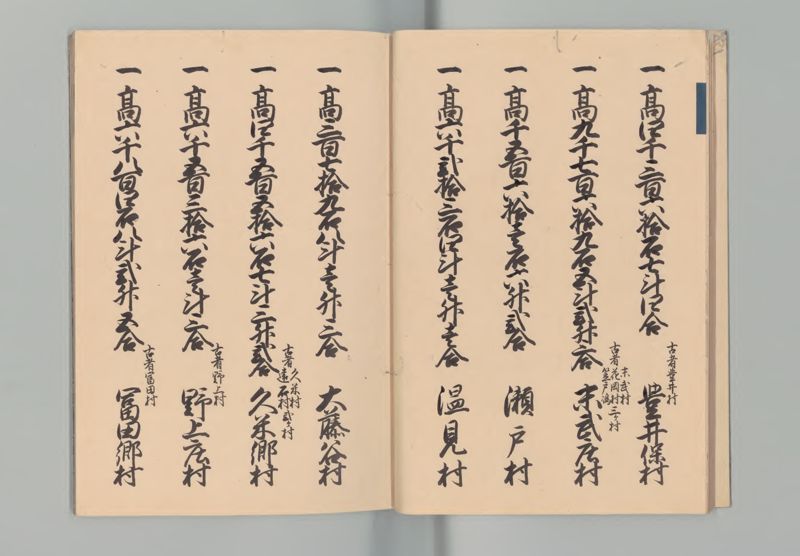 一 高四千三百六拾石七斗四合
古者豊井村
豊井保村
一 高九千七百六拾九石五斗弐升六合
末武村
古者花岡村三ヶ村
笠戸嶋
末武庄村
一 高千五百六拾壱石六升弐合
瀬戸村
一 高六千弐拾三石四斗壱升壱合
温見村
一 高三百七拾九石八斗壱升三合
大藤谷村
一 高四千五百五拾六石七斗三升弐合
久米村
古者遠石村弐ヶ村
久米郷村
一 高六千五百三拾六石壱斗六合
古者野上村
野上庄村
一 高六千八百四石八斗弐升五合
古者富田村
富田郷村